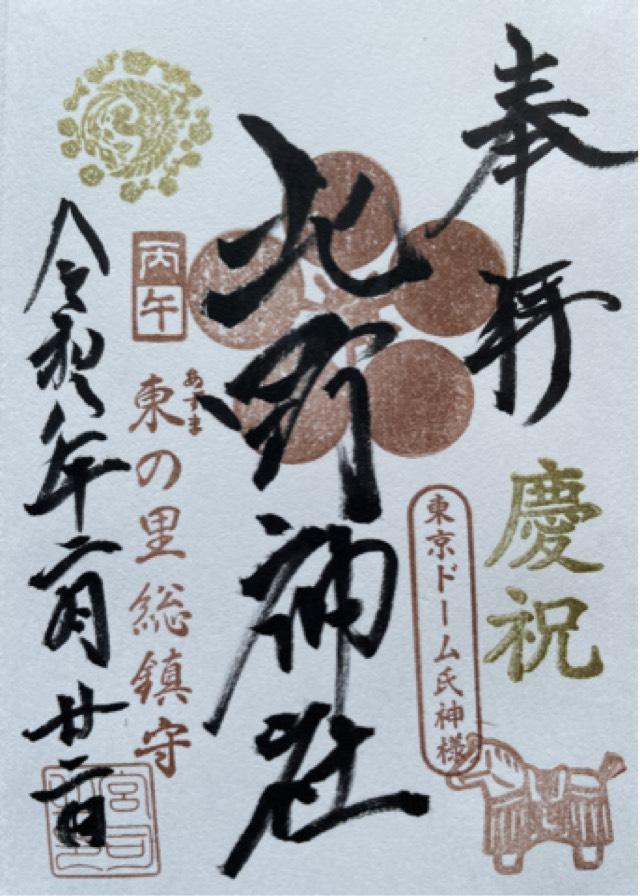 奉拝
慶祝
東京ドーム氏神様
北野神社
丙午
あずま
東の里総鎮守
令和八年二月廿二日
宮司